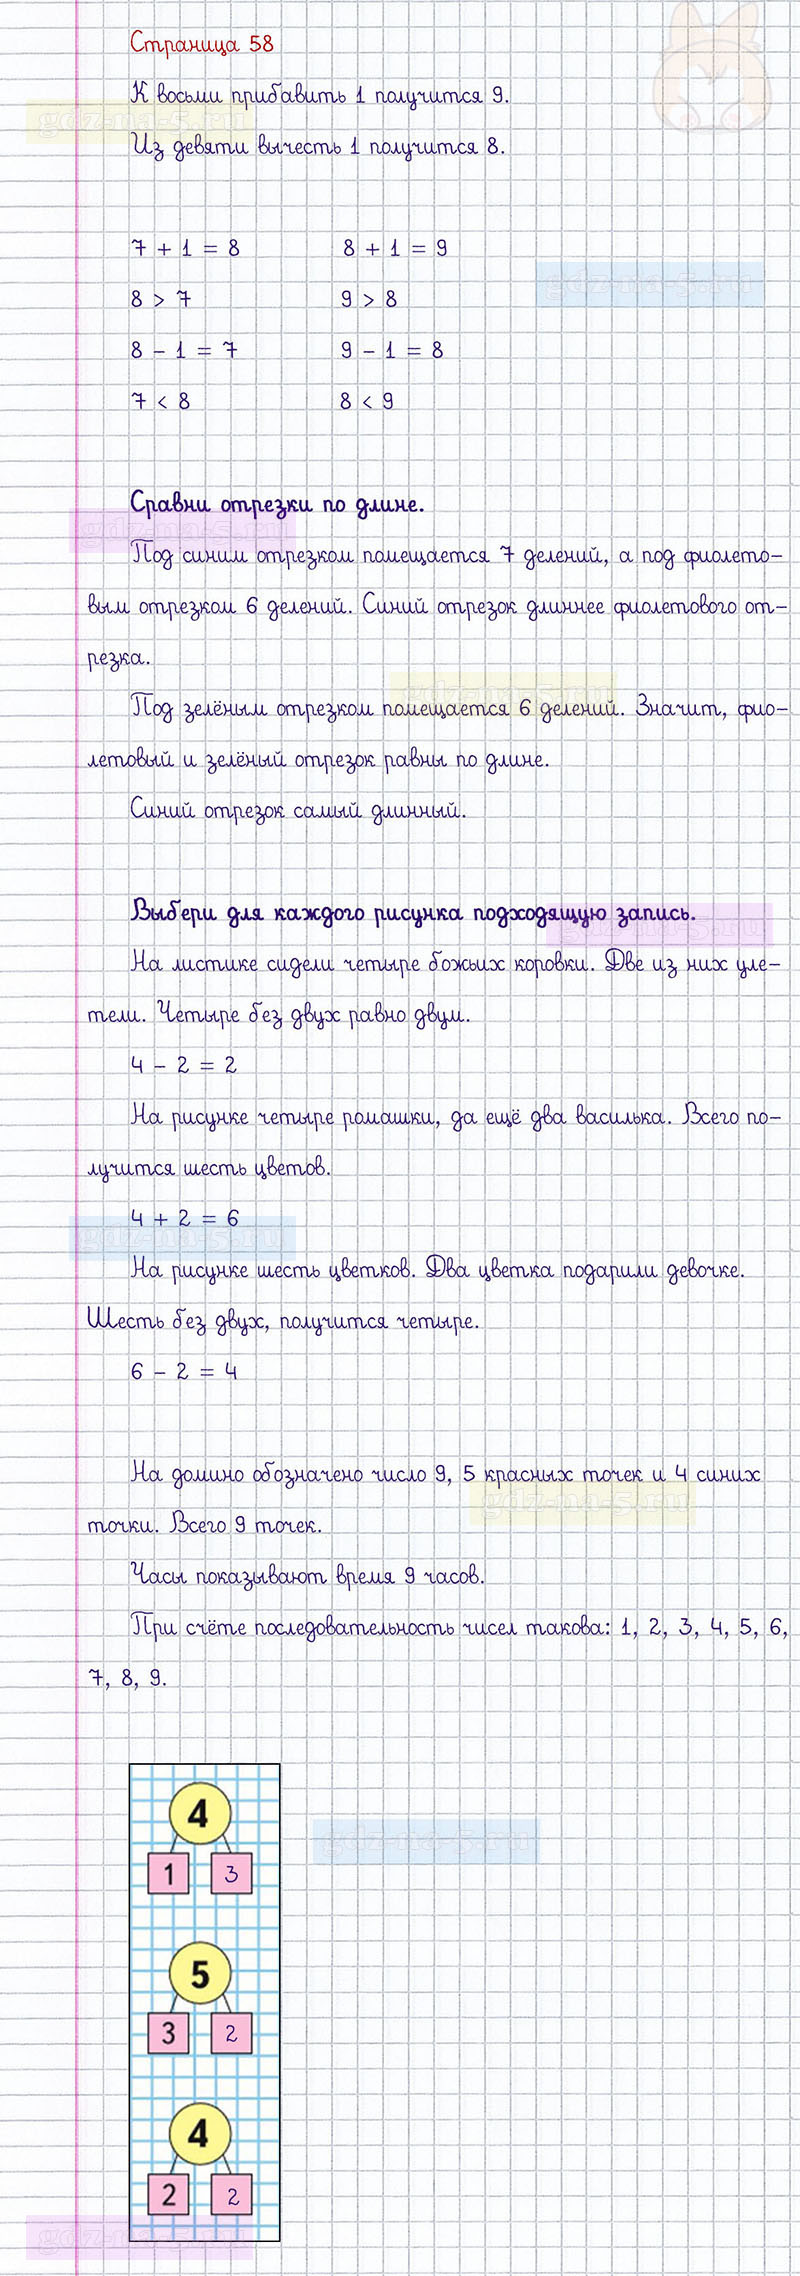 Страница 58
К восьми прибавить 1 получится 9.
gdz-na-5.ru
Из девяти вычесть 1 получится 8.
7 + 1 = 8 8 + 1 = 9
gdz-na-5.ru
8 > 7 9 > 8
8 - 1 = 7 9 - 1 = 8
7 < 8 8 < 9
Сравни отрезки по длине.
gdz-na-5.ru
Под синим отрезком помещается 7 делений, а под фиолето-
вым отрезком 6 делений. Синий отрезок длиннее фиолетового от-
резка.
gdz-na-5.ru
Под зелёным отрезком помещается 6 делений. Значит, фио-
летовый и зелёный отрезок равны по длине.
Синий отрезок самый длинный.
Выбери для каждого рисунка подходящую запись.
gdz-na-5.ru
На листике сидели четыре божьих коровки. Две из них уле-
тели. Четыре без двух равно двум.
4 - 2 = 2
На рисунке четыре ромашки, да ещё два василька. Всего по-
лучится шесть цветов.
4 + 2 = 6
gdz-na-5.ru
На рисунке шесть цветков. Два цветка подарили девочке.
Шесть без двух, получится четыре.
6 - 2 = 4
На домино обозначено число 9, 5 красных точек и 4 синих
gdz-na-5.ru
точки. Всего 9 точек.
Часы показывают время 9 часов.
При счёте последовательность чисел такова: 1, 2, 3, 4, 5, 6,
7, 8, 9.
4
gdz-na-5.ru
1 3
5
3 2
4
2 2
gdz-na-5.ru